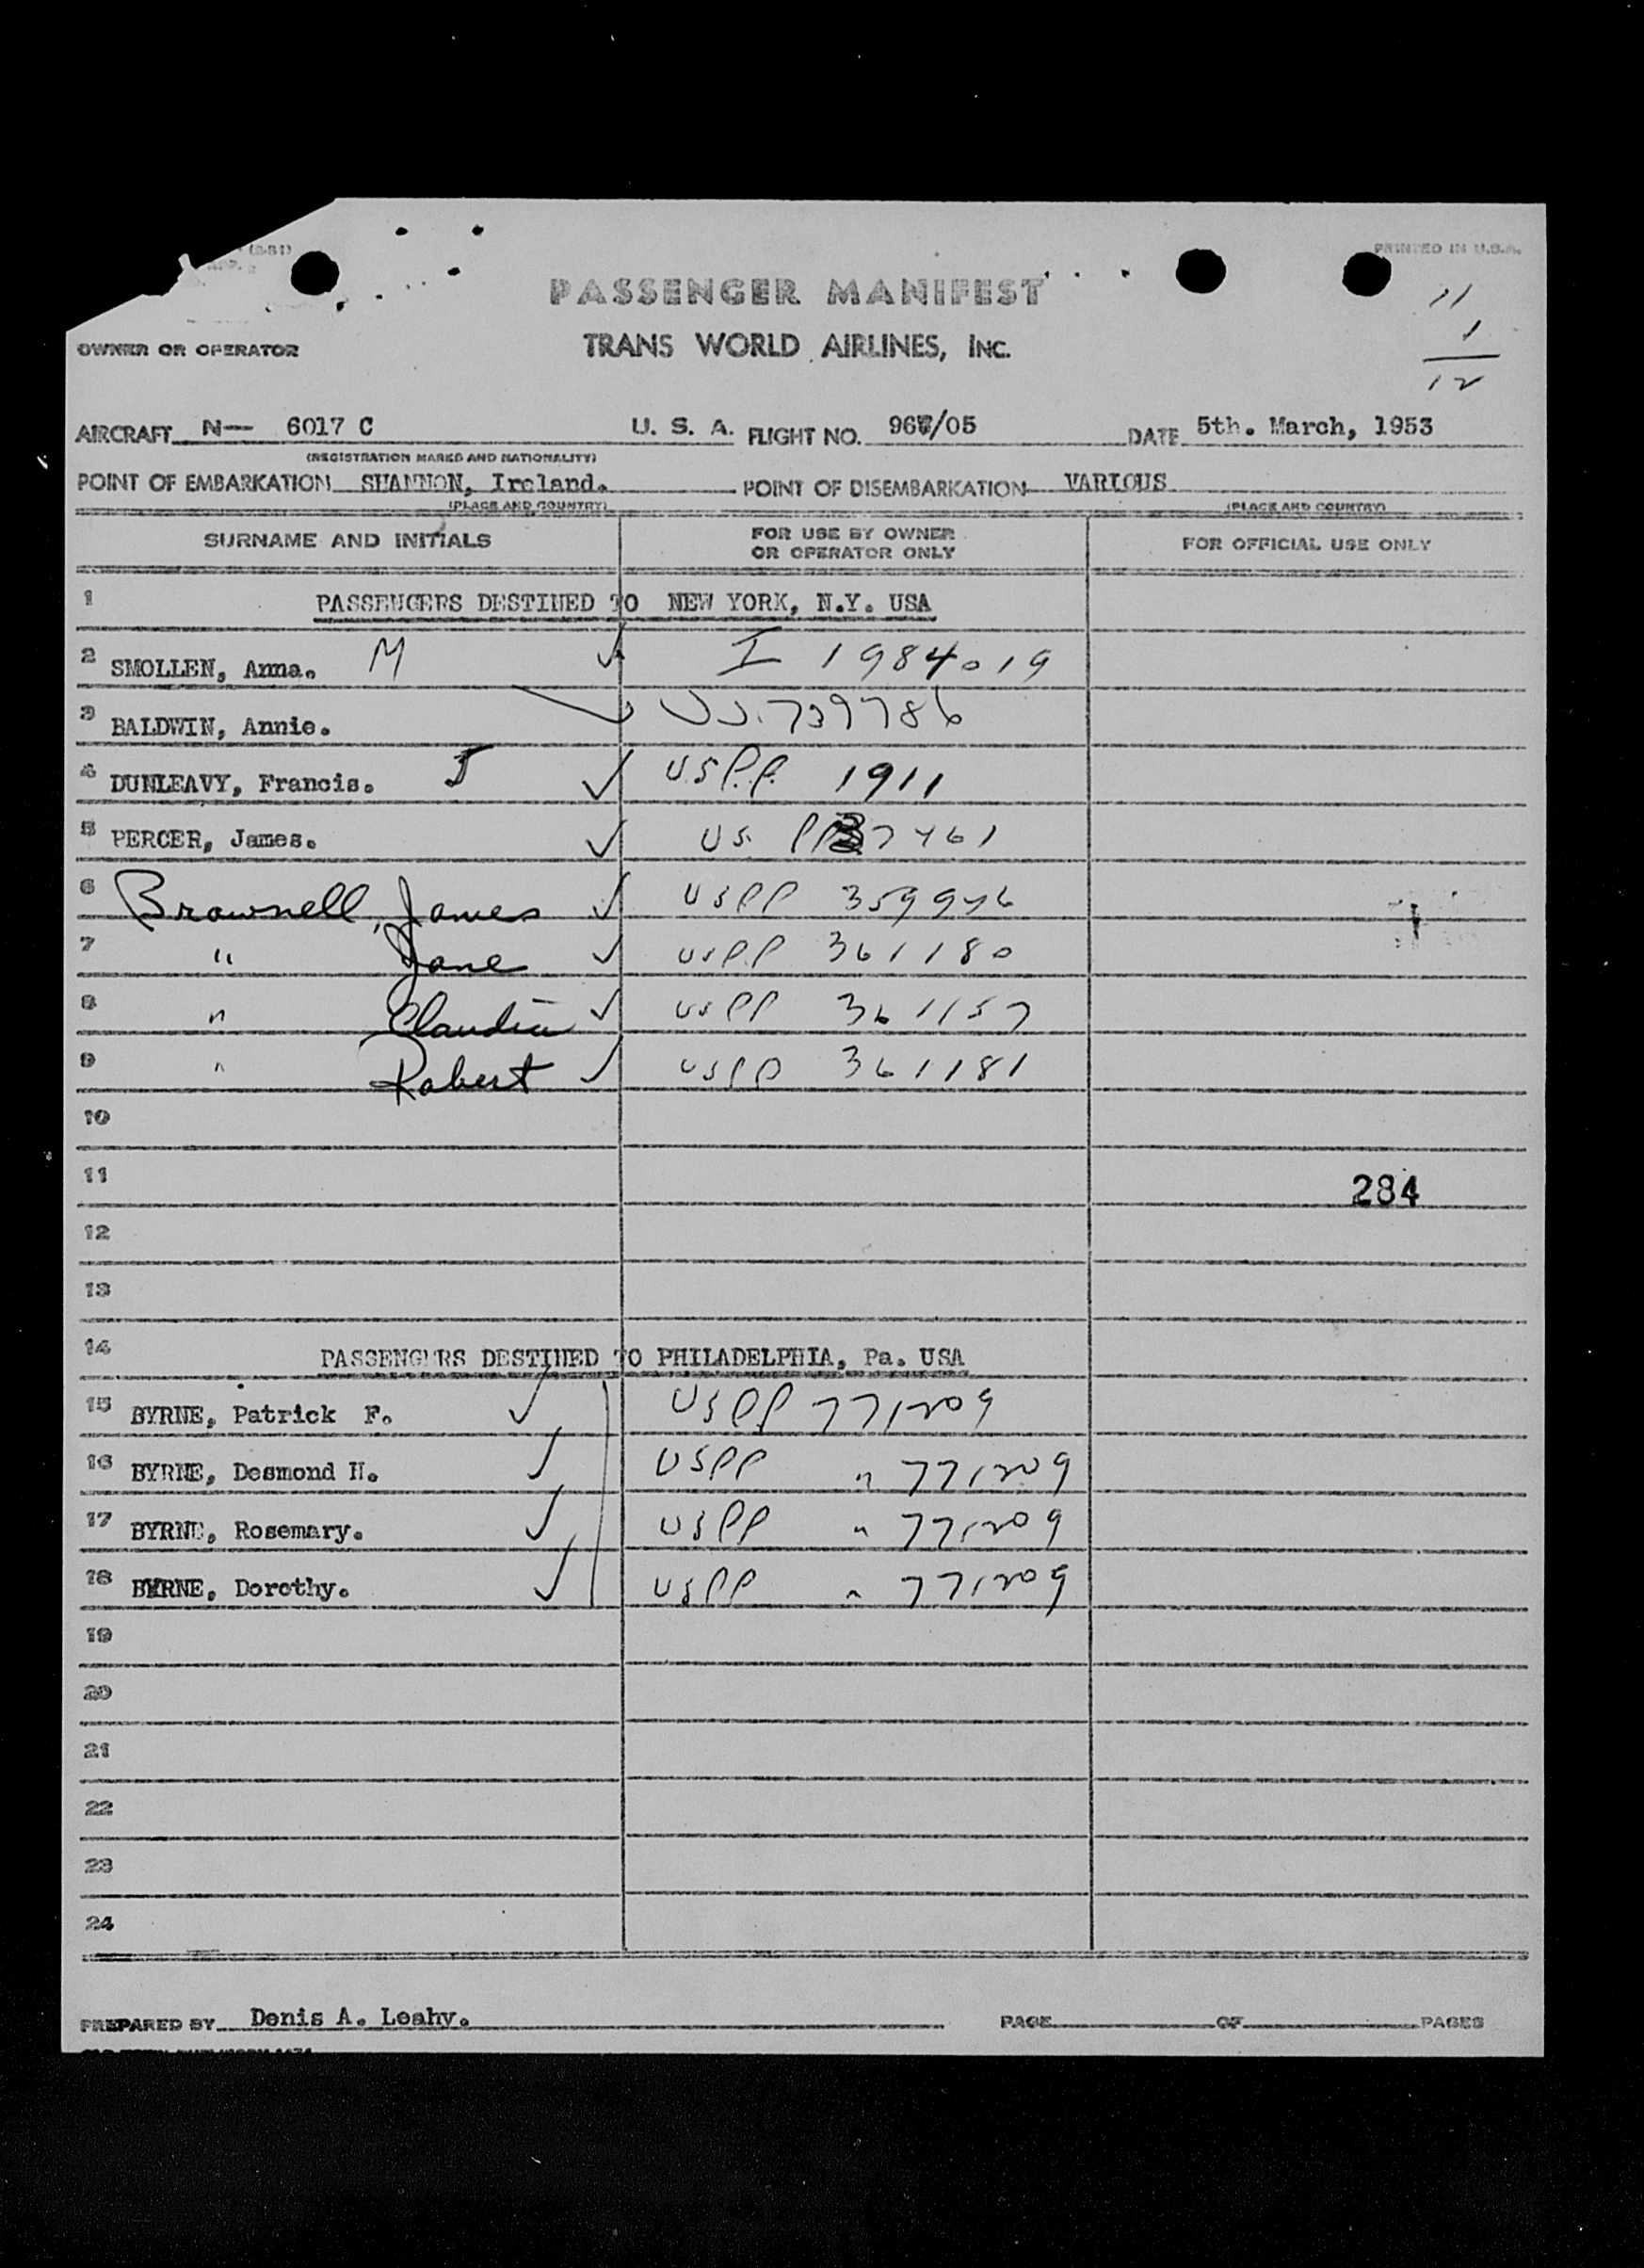 (2-51)
PRINTED IN U.S.A.
PASSENGER MANIFEST
11
1
12
OWNER OR OPERATOR TRANS WORLD AIRLINES, INC.
AIRCRAFT N— 6017 C U. S. A. FLIGHT NO. /05 DATE 5th. March, 1953
(REGISTRATION MARKS AND NATIONALITY)
POINT OF EMBARKATION SHANNON, Ireland. POINT OF DISEMBARKATION VARIOUS
(PLACE AND COUNTRY) (PLACE AND COUNTRY)
SURNAME AND INITIALS FOR USE BY OWNER OR OPERATOR ONLY FOR OFFICIAL USE ONLY
1 PASSENGERS DESTINED TO NEW YORK, N.Y. USA
2 SMOLLEN, Anna. M ✓ I 1984019
3 BALDWIN, Annie. ✓ US. 739786
4 DUNLEAVY, Francis. J ✓ U.S.P.P. 1911
5 PERCER, James. ✓ US. PP
6 Brownell, James ✓ USPP 359946
7 " Jane ✓ USPP 361180
8 " Claudia ✓ USPP 361157
9 " Robert ✓ USPP 361181
10
11 284
12
13
14 PASSENGERS DESTINED TO PHILADELPHIA, Pa. USA
15 BYRNE, Patrick F. ✓ USPP 771209
16 BYRNE, Desmond H. ✓ USPP " 771209
17 BYRNE, Rosemary. ✓ USPP " 771209
18 BYRNE, Dorothy. ✓ USPP " 771209
19
20
21
22
23
24
PREPARED BY Denis A. Leahy. PAGE OF PAGES